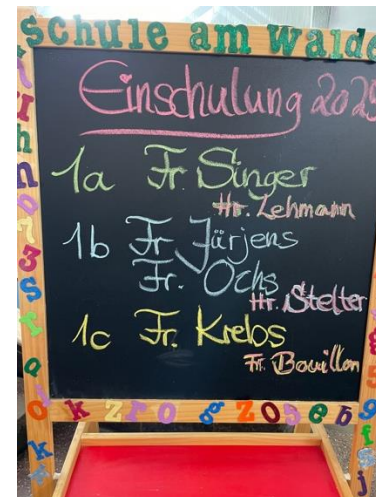 schule am walde
Einschulung 2025
1a Fr. Singer
Hr. Lehmann
1b Fr Jürjens
Fr. Ochs
Hr. Stelter
1c Fr. Krebs
Fr. Bouillon
k z r o g z o s e b